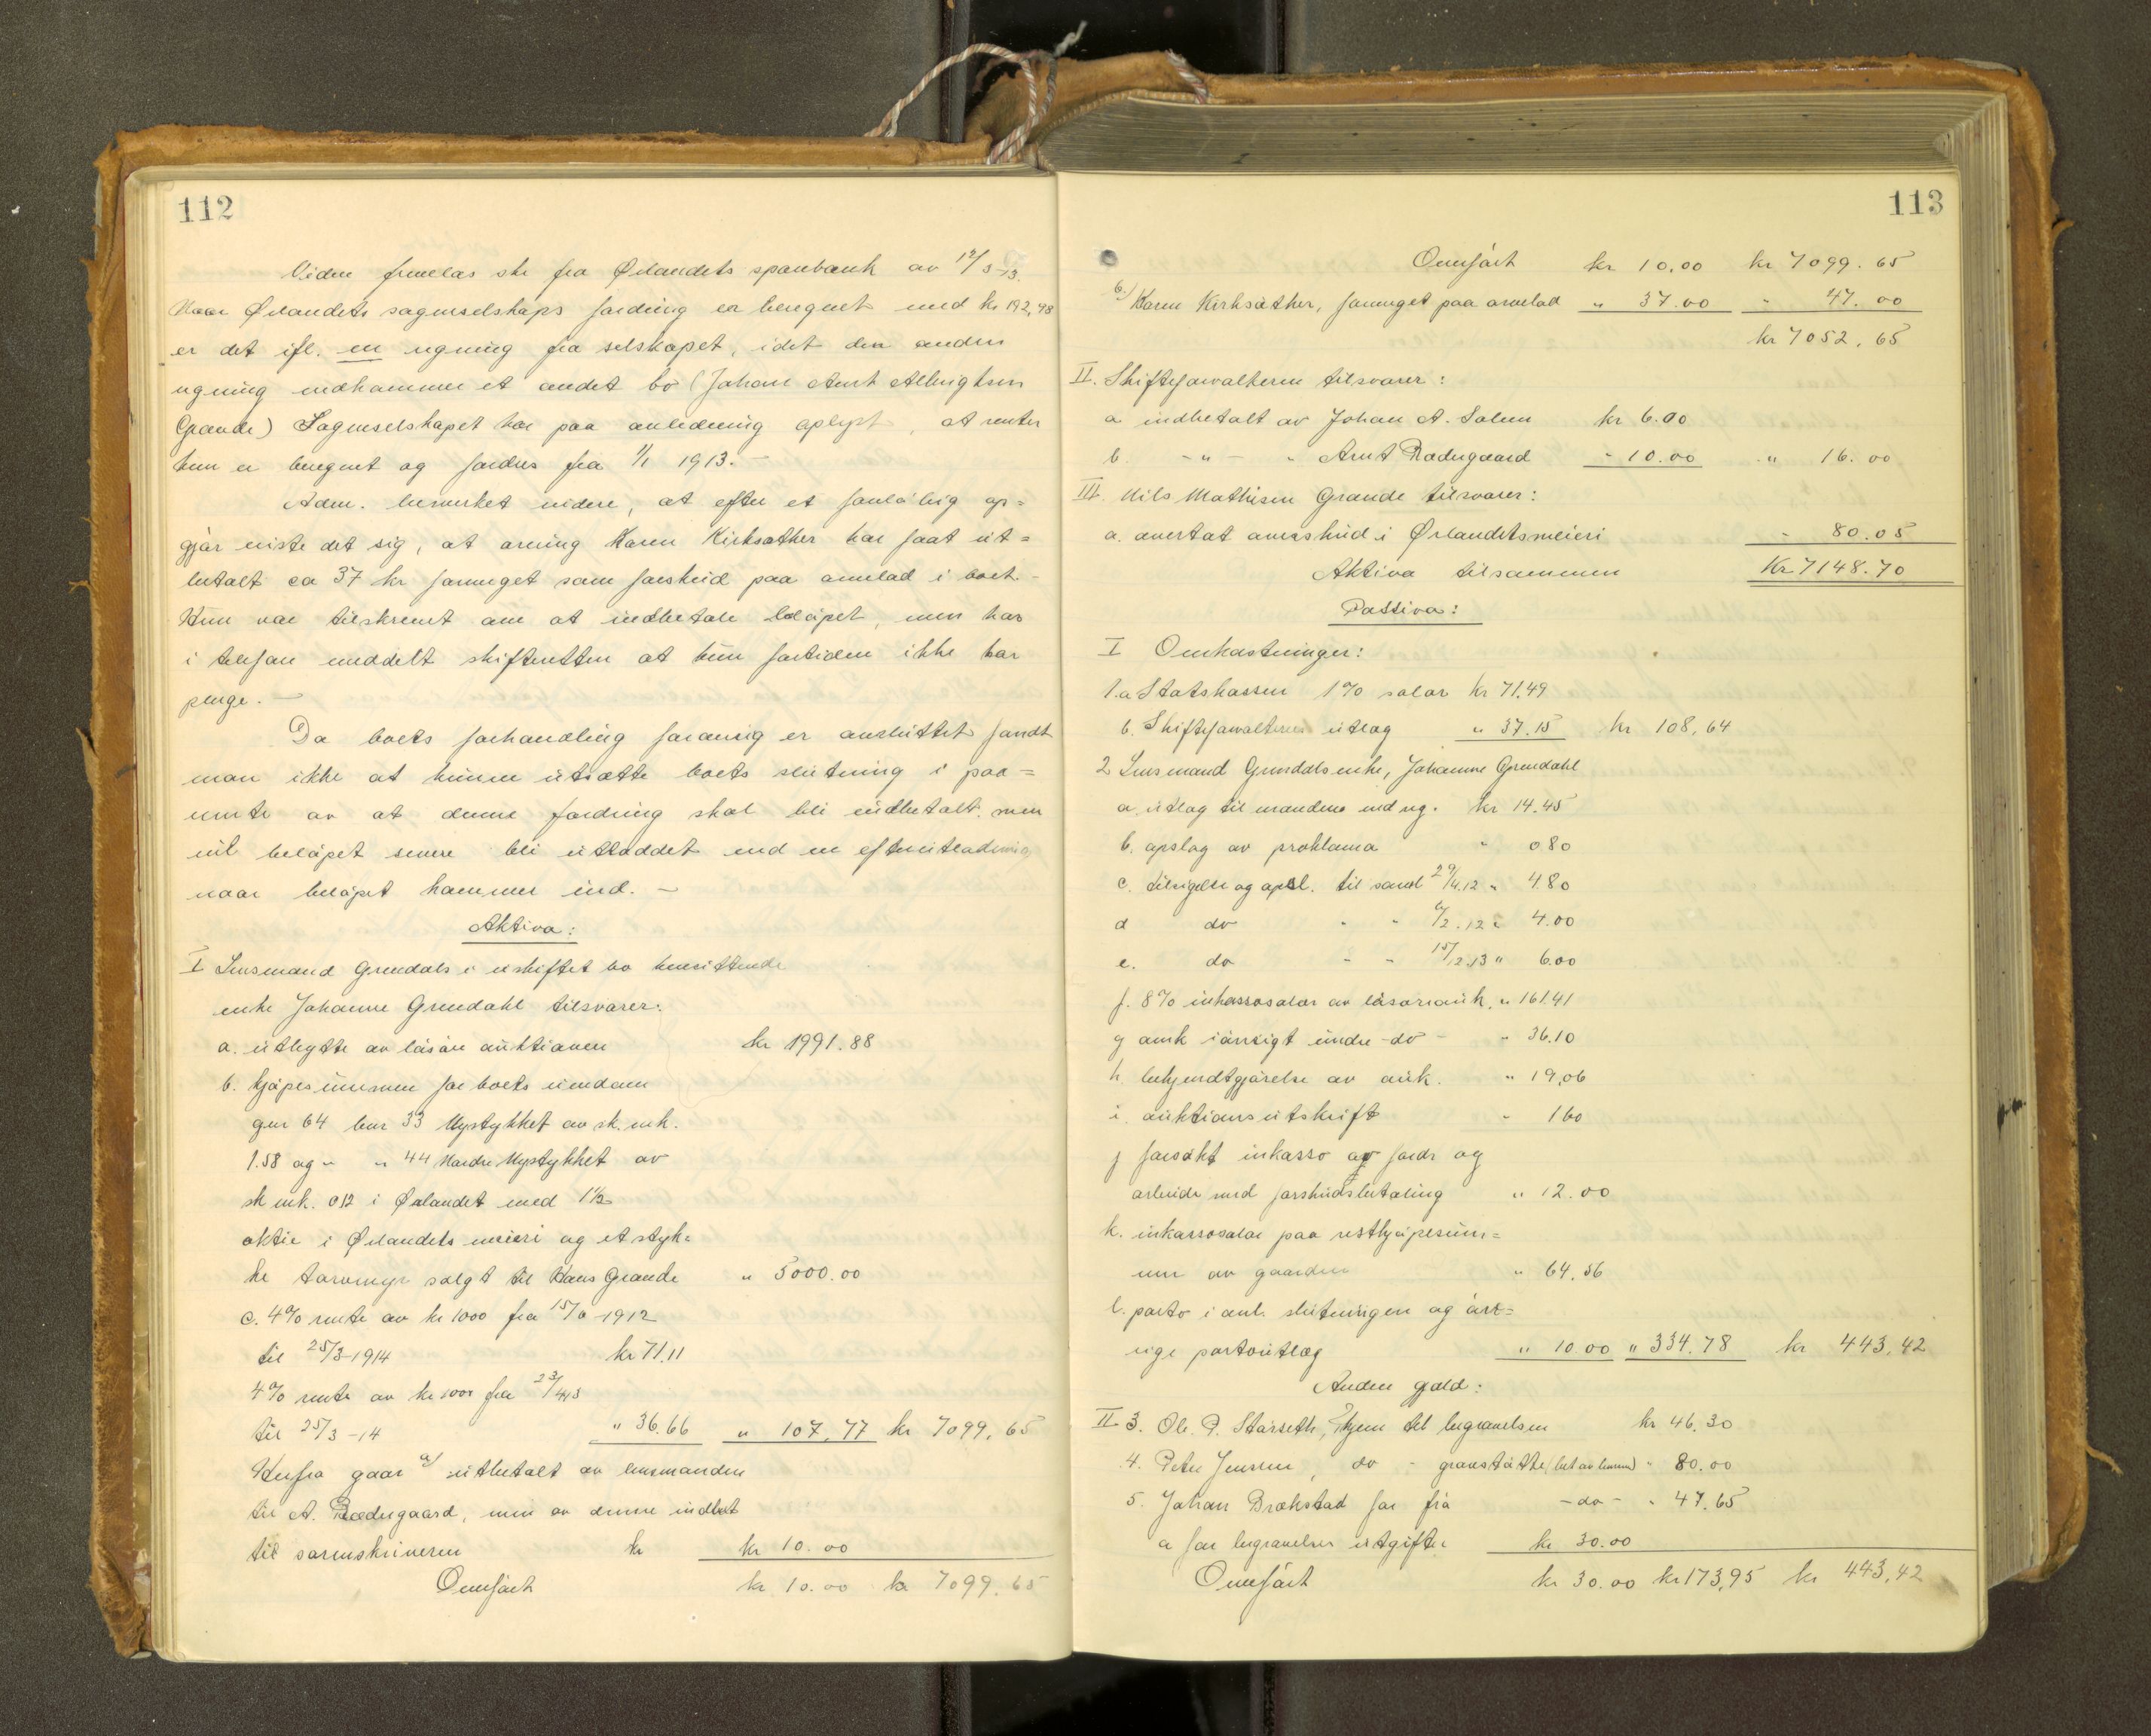 112
Videre fremlas skr fra Ørlandets sparebank av 12/3 13.
Naar Ørlandets sagmuselskaps fordring er beregnet med kr 192,98
er det ifl. en regning fra selskapet, idet den anden
regning vedkommer et andet bo (Johan Arnt Albrigtsen
Grande) Sagmuselskapet har paa anledning oplyst, at renter
kun er beregnet og fordres fra 1/1 1913. —
Adm. bemerket videre, at efter et forløbig op=
gjør viste det sig, at arving Karen Kirksæther har faat ut=
betalt ca 37 kr formeget som forskud paa arvelod i boet. -
Hun var tilskrevet om at indbetale beløpet, men har
i telefon meddelt skifteretten at hun fortiden ikke har
penge. —
Da boets forhandling forøvrig er avsluttet fandt
man ikke at kunne utsætte boets slutning i paa=
vente av at denne fordring skal bli indbetalt, men
vil beløpet senere bli utloddet ved en efterutlodning
naar beløpet kommer ind. —
Aktiva:
I Lensmand Grendals i uskiftet bo hensittende
enke Johanne Grendahl tilsvarer:
a. utbytte av løsøre auktionen kr 1991.88
b. kjøpesummen for boets eiendom
gnr 64 bnr 33 Nystykket av sk. mk.
1.58 og " " 44 Nordre Nystykket av
sk mk. 012 i Ørlandet med 1 1/2
aktie i Ørlandets meieri og et styk=
ke torvmyr solgt til Hans Grande " 5000.00
c. 4% rente av kr 1000 fra 15/6 -1912
til 25/3-1914 kr 71.11
4% rente av kr 1000 fra 23/4 13
til 25/3 -14 " 36.66 " 107,77 kr 7099,65
Herfra gaar a) utbetalt av lensmanden
til A. Rædergaard, men av denne indbet
til sorenskriveren kr kr 10.00
Omført kr 10.00 kr 7099.65
113
Omført kr 10.00 kr 7099.65
b) Karen Kirksæther, formeget paa arvelod " 37.00 " 47.00
kr 7052,65
II. Skifteforvalteren tilsvarer:
a indbetalt av Johan A. Solem kr 6.00
b. - " - " Arnt Rædergaard " 10.00 " 16.00
III. Nils Mathisen Grande tilsvarer:
a. overtat overskud i Ørlandets meieri " 80.05
Aktiva tilsammen Kr 7148.70
Passiva:
I Omkostninger:
1.a Statskassen 1% salær kr 71,49
b. Skifteforvalterens utlæg " 37.15 kr 108,64
2 Lensmand Grendals enke, Johanne Grendahl
a. utlæg til mændene ved reg. kr 14.45
b. opslag av proklama " 0 80
c. tilsigelse og opsl. til saml 29/4.12 " 4.80
d do " " 6/2.12 " 4.00
e. do " " 15/2.13 " 6.00
f. 8% inkassosalær av løsøreauk. " 161.41
g omk iøvrigt under -do- " 36.10
h. bekjendtgjørelse av auk. " 19,06
i. auktionsutskrift " 1 60
j forsøkt inkasso av fordr og
arbeide med forskudsbetaling " 12.00
k. inkassosalær paa restkjøpesum=
men av gaarden " 64,56
l. porto i anl. slutningen og øv=
rige portoutlæg " 10 00 " 334.78 kr 443,42
Anden gjæld:
II 3. Ole P. Størseth, tilgjem til begravelsen kr 46.30
4. Peter Jenssen, do - gravstøtte (bet av ) " 80.00
5. Johan Brækstad for fra -do- " 47.65
a for begravelses utgifter kr 30.00
Omført kr 30.00 kr 173,95 kr 443,42